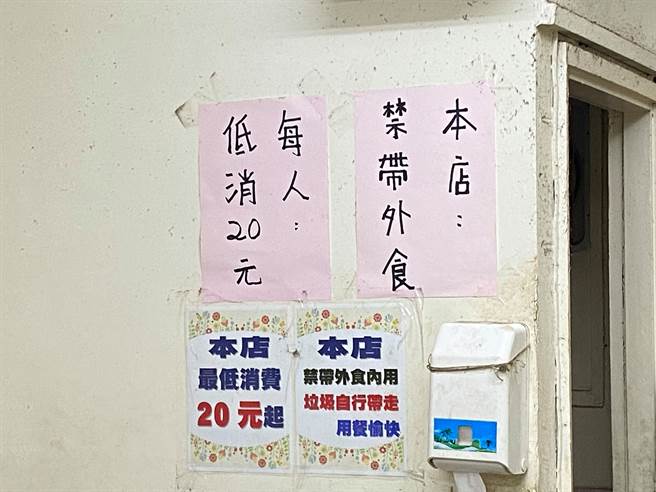 本店：
禁帶外食
每人：
低消20元
本店
最低消費
20元起
本店
禁帶外食內用
垃圾自行帶走
用餐愉快